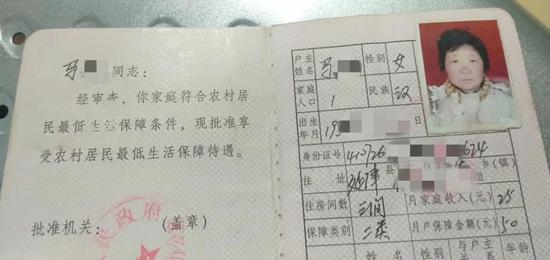 马
同志:
经审查,你家庭符合农村居
民最低生活保障条件,现批准享
受农村居民最低生活保障待遇。
批准机关:
(盖章)
民政府
户主姓名 马 性别 女
家庭人口 1 民族 汉
出生年月 19 日
身份证号 410726 624
住址 延津 县 乡(镇)
住房间数 三间 月家庭收入(元) 25
保障类别 二类 月户保障金额(元) 50
姓名 性 年 与户主